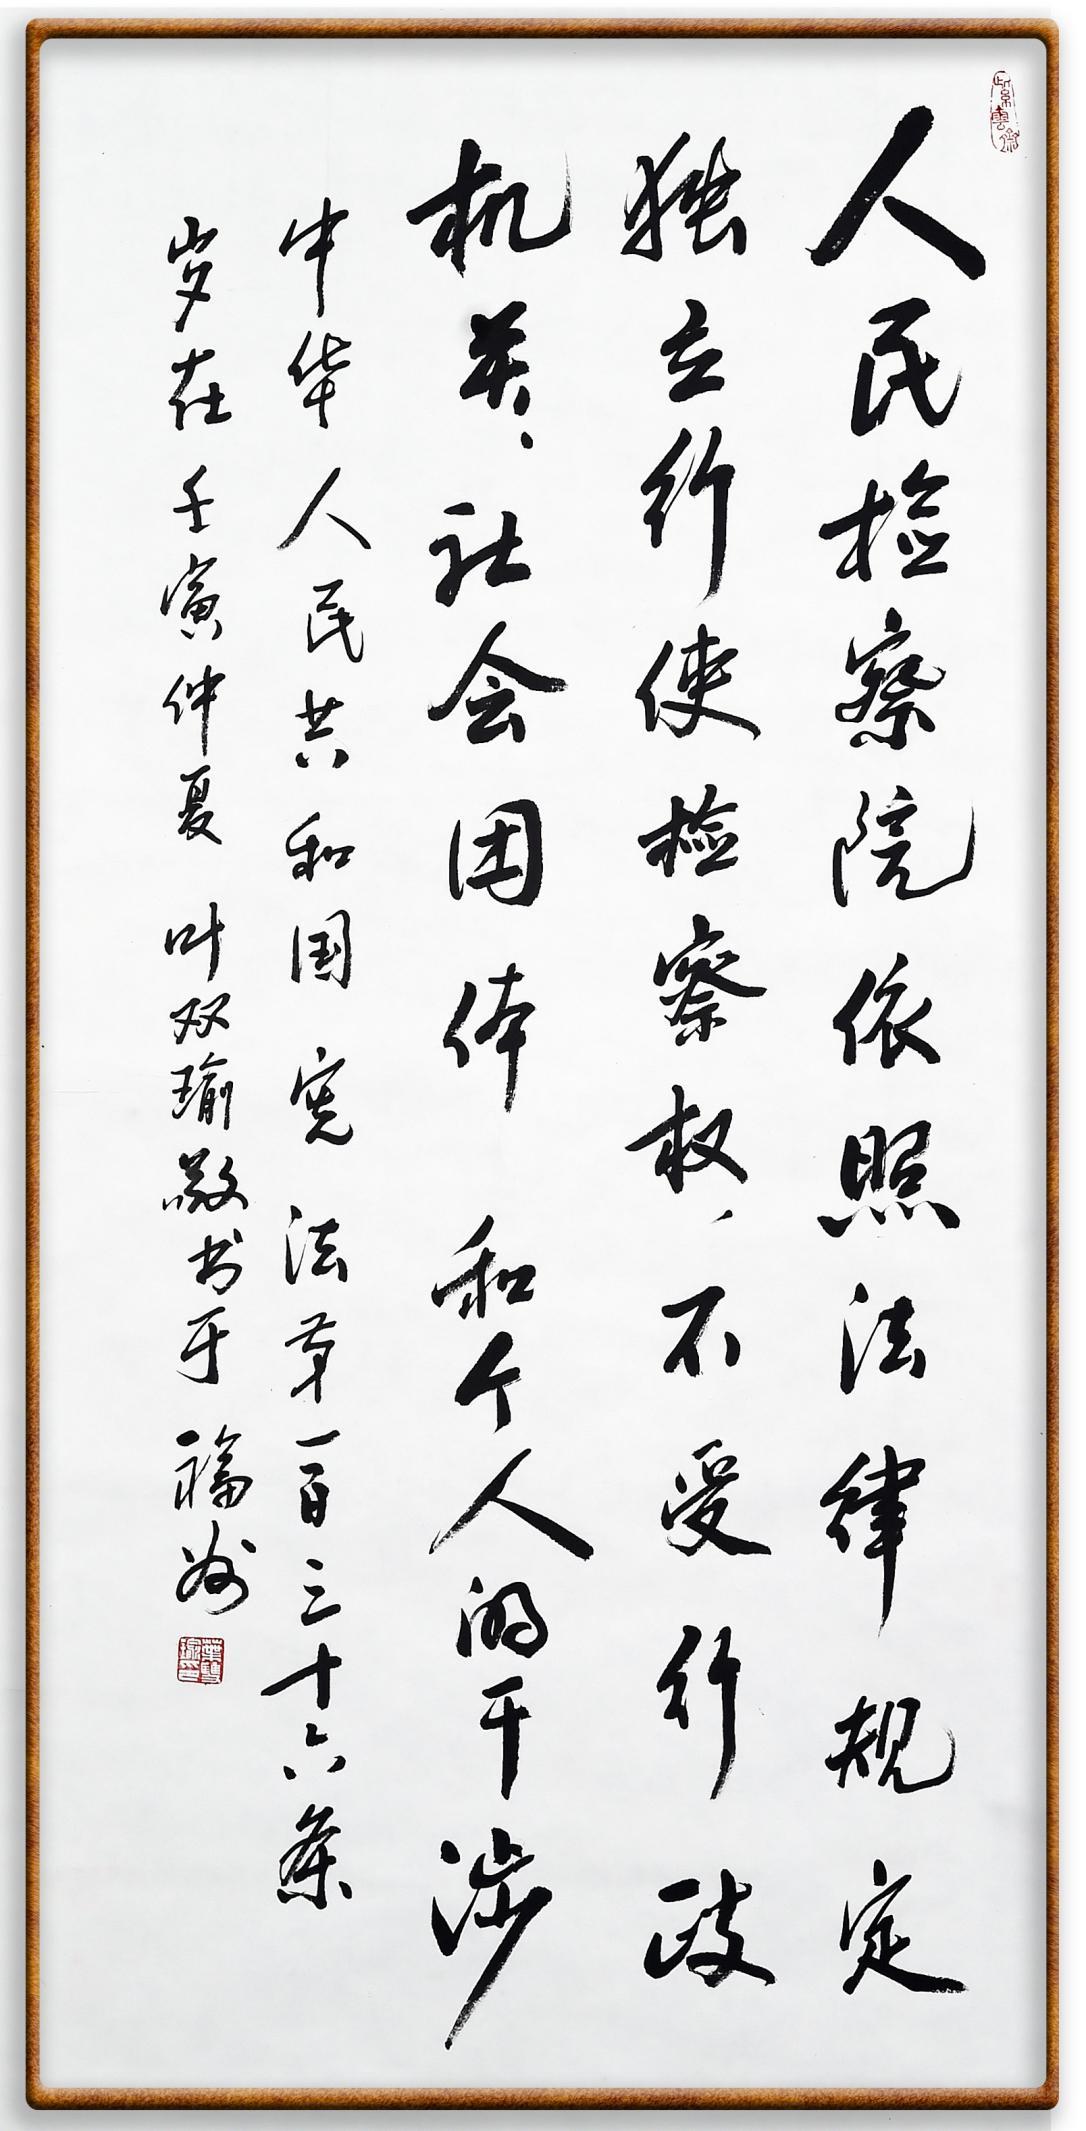 人民检察院依照法律规定
独立行使检察权，不受行政
机关、社会团体和个人的干涉
中华人民共和国宪法第一百三十六条
岁在壬寅仲夏 叶双瑜敬书于福州